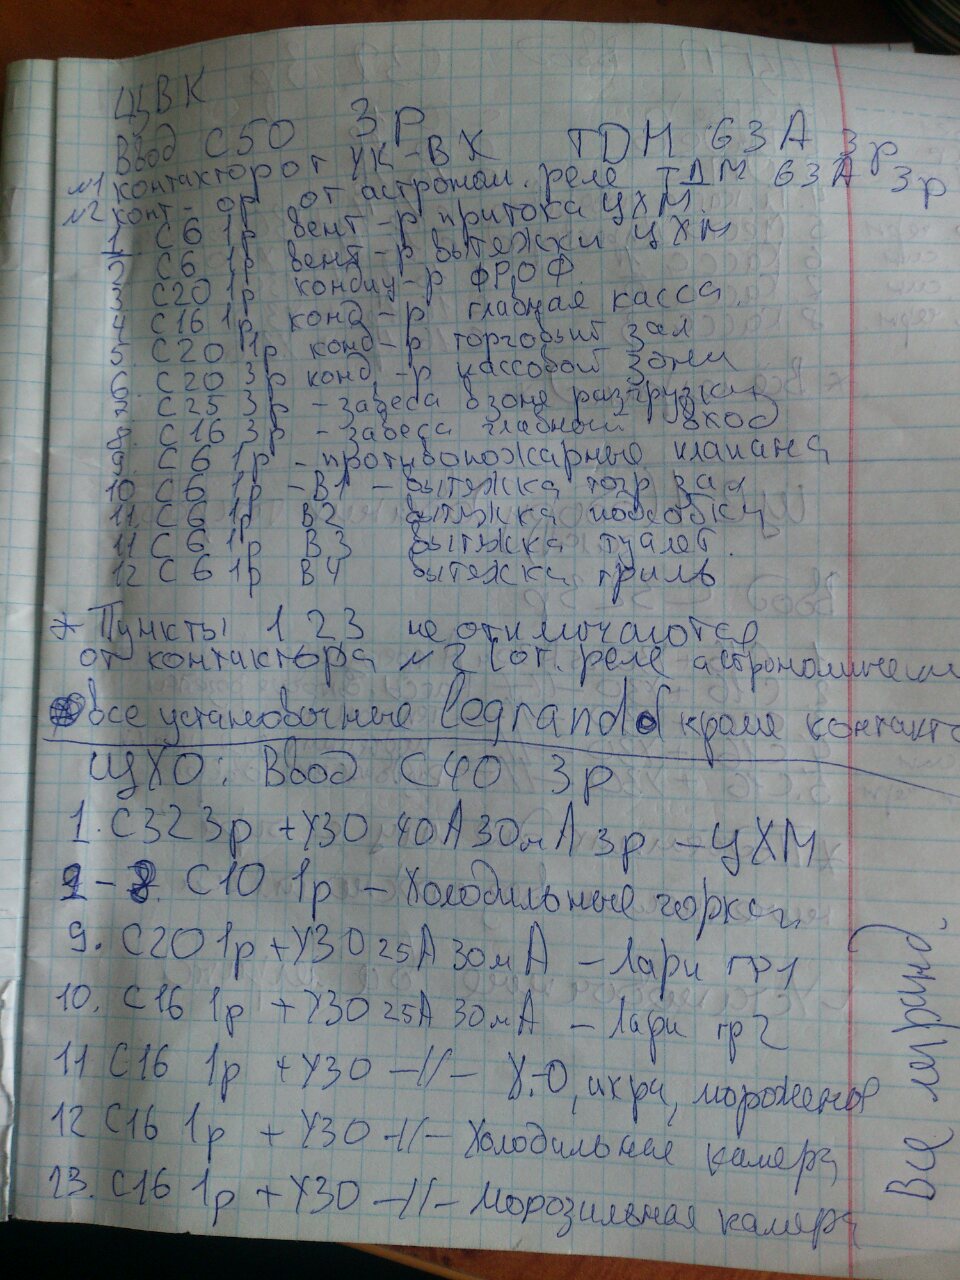 ЩВК
Ввод С50 3Р
№1 контактор от УК-ВХ ТДМ 63А 3р
№2 конт-ор от астроном. реле ТДМ 63А 3р
1 С6 1р вент-р притока ЦХМ.
2 С6 1р вент-р вытяжки ЦХМ
3 С20 1р кондиц-р ФРОФ.
4 С16 1р конд-р главная касса
5. С20 1р конд-р торговый зал
6. С20 3р конд.-р кассовой зоны
7. С25 3р - завеса в зоне разгрузки
8. С16 3р - завеса главный вход
9. С6 1р - противопожарные клапана
10 С6 1р - В1 - вытяжка тогр зал
11. С6 1р В2 вытяжка подсобку
11 С6 1р В3 вытяжка туалет.
12 С6 1р В4 вытяжка гриль
* Пункты 1 2 3 не отключаются
от контактора №2 (от. реле астрономическ
все установочные legrand кроме контакто
ЩХО: Ввод С40 3р
1. С32 3р + УЗО 40А 30мА 3р - ЦХМ
2 - 8. С10 1р - Холодильные горки.
9. С20 1р + УЗО 25А 30мА - Лари гр1
10. С16 1р + УЗО 25А 30мА - Лари гр2
11 С16 1р + УЗО -//- Х.О, икры, мороженое
12 С16 1р + УЗО -//- Холодильная камера
13. С16 1р + УЗО -//- Морозильная камера
Все легранд.